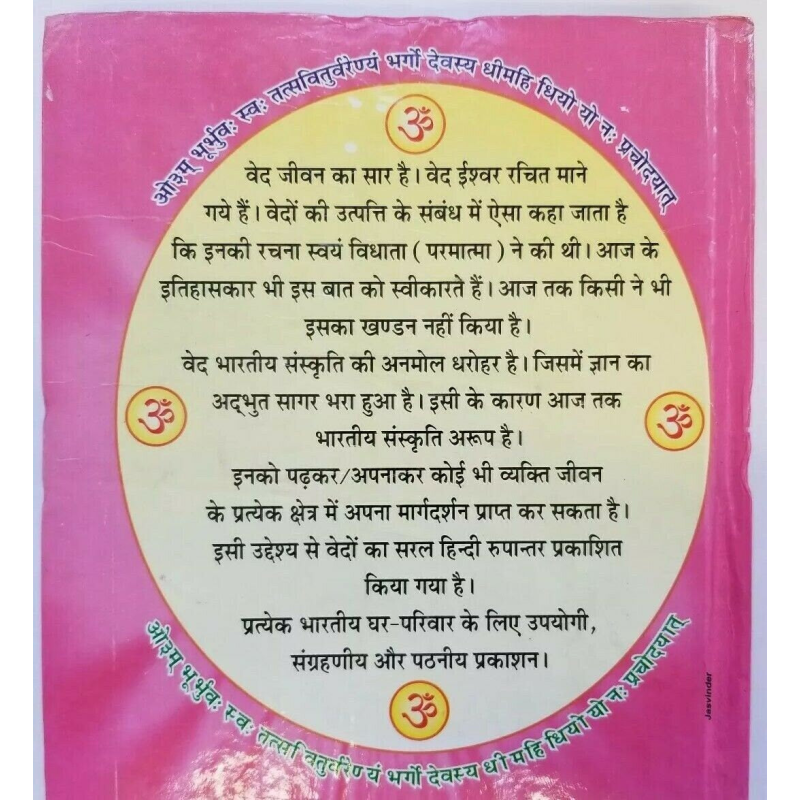 ओ३म् भूर्भुवः स्वः तत्सवितुर्वरेण्यं भर्गो देवस्य धीमहि धियो यो नः प्रचोदयात्
ॐ
वेद जीवन का सार है। वेद ईश्वर रचित माने
गये हैं। वेदों की उत्पत्ति के संबंध में ऐसा कहा जाता है
कि इनकी रचना स्वयं विधाता ( परमात्मा ) ने की थी। आज के
इतिहासकार भी इस बात को स्वीकारतें हैं। आज तक किसी ने भी
इसका खण्डन नहीं किया है।
वेद भारतीय संस्कृति की अनमोल धरोहर है। जिसमें ज्ञान का
ॐ अद्भुत सागर भरा हुआ है। इसी के कारण आज तक ॐ
भारतीय संस्कृति अरूप है।
इनको पढ़कर/अपनाकर कोई भी व्यक्ति जीवन
के प्रत्येक क्षेत्र में अपना मार्गदर्शन प्राप्त कर सकता है।
इसी उद्देश्य से वेदों का सरल हिन्दी रुपान्तर प्रकाशित
किया गया है।
प्रत्येक भारतीय घर-परिवार के लिए उपयोगी,
संग्रहणीय और पठनीय प्रकाशन।
ॐ
ओ३म् भूर्भुवः स्वः तत्सवितुर्वरेण्यं भर्गो देवस्य धीमहि धियो यो नः प्रचोदयात्
Jasvinder